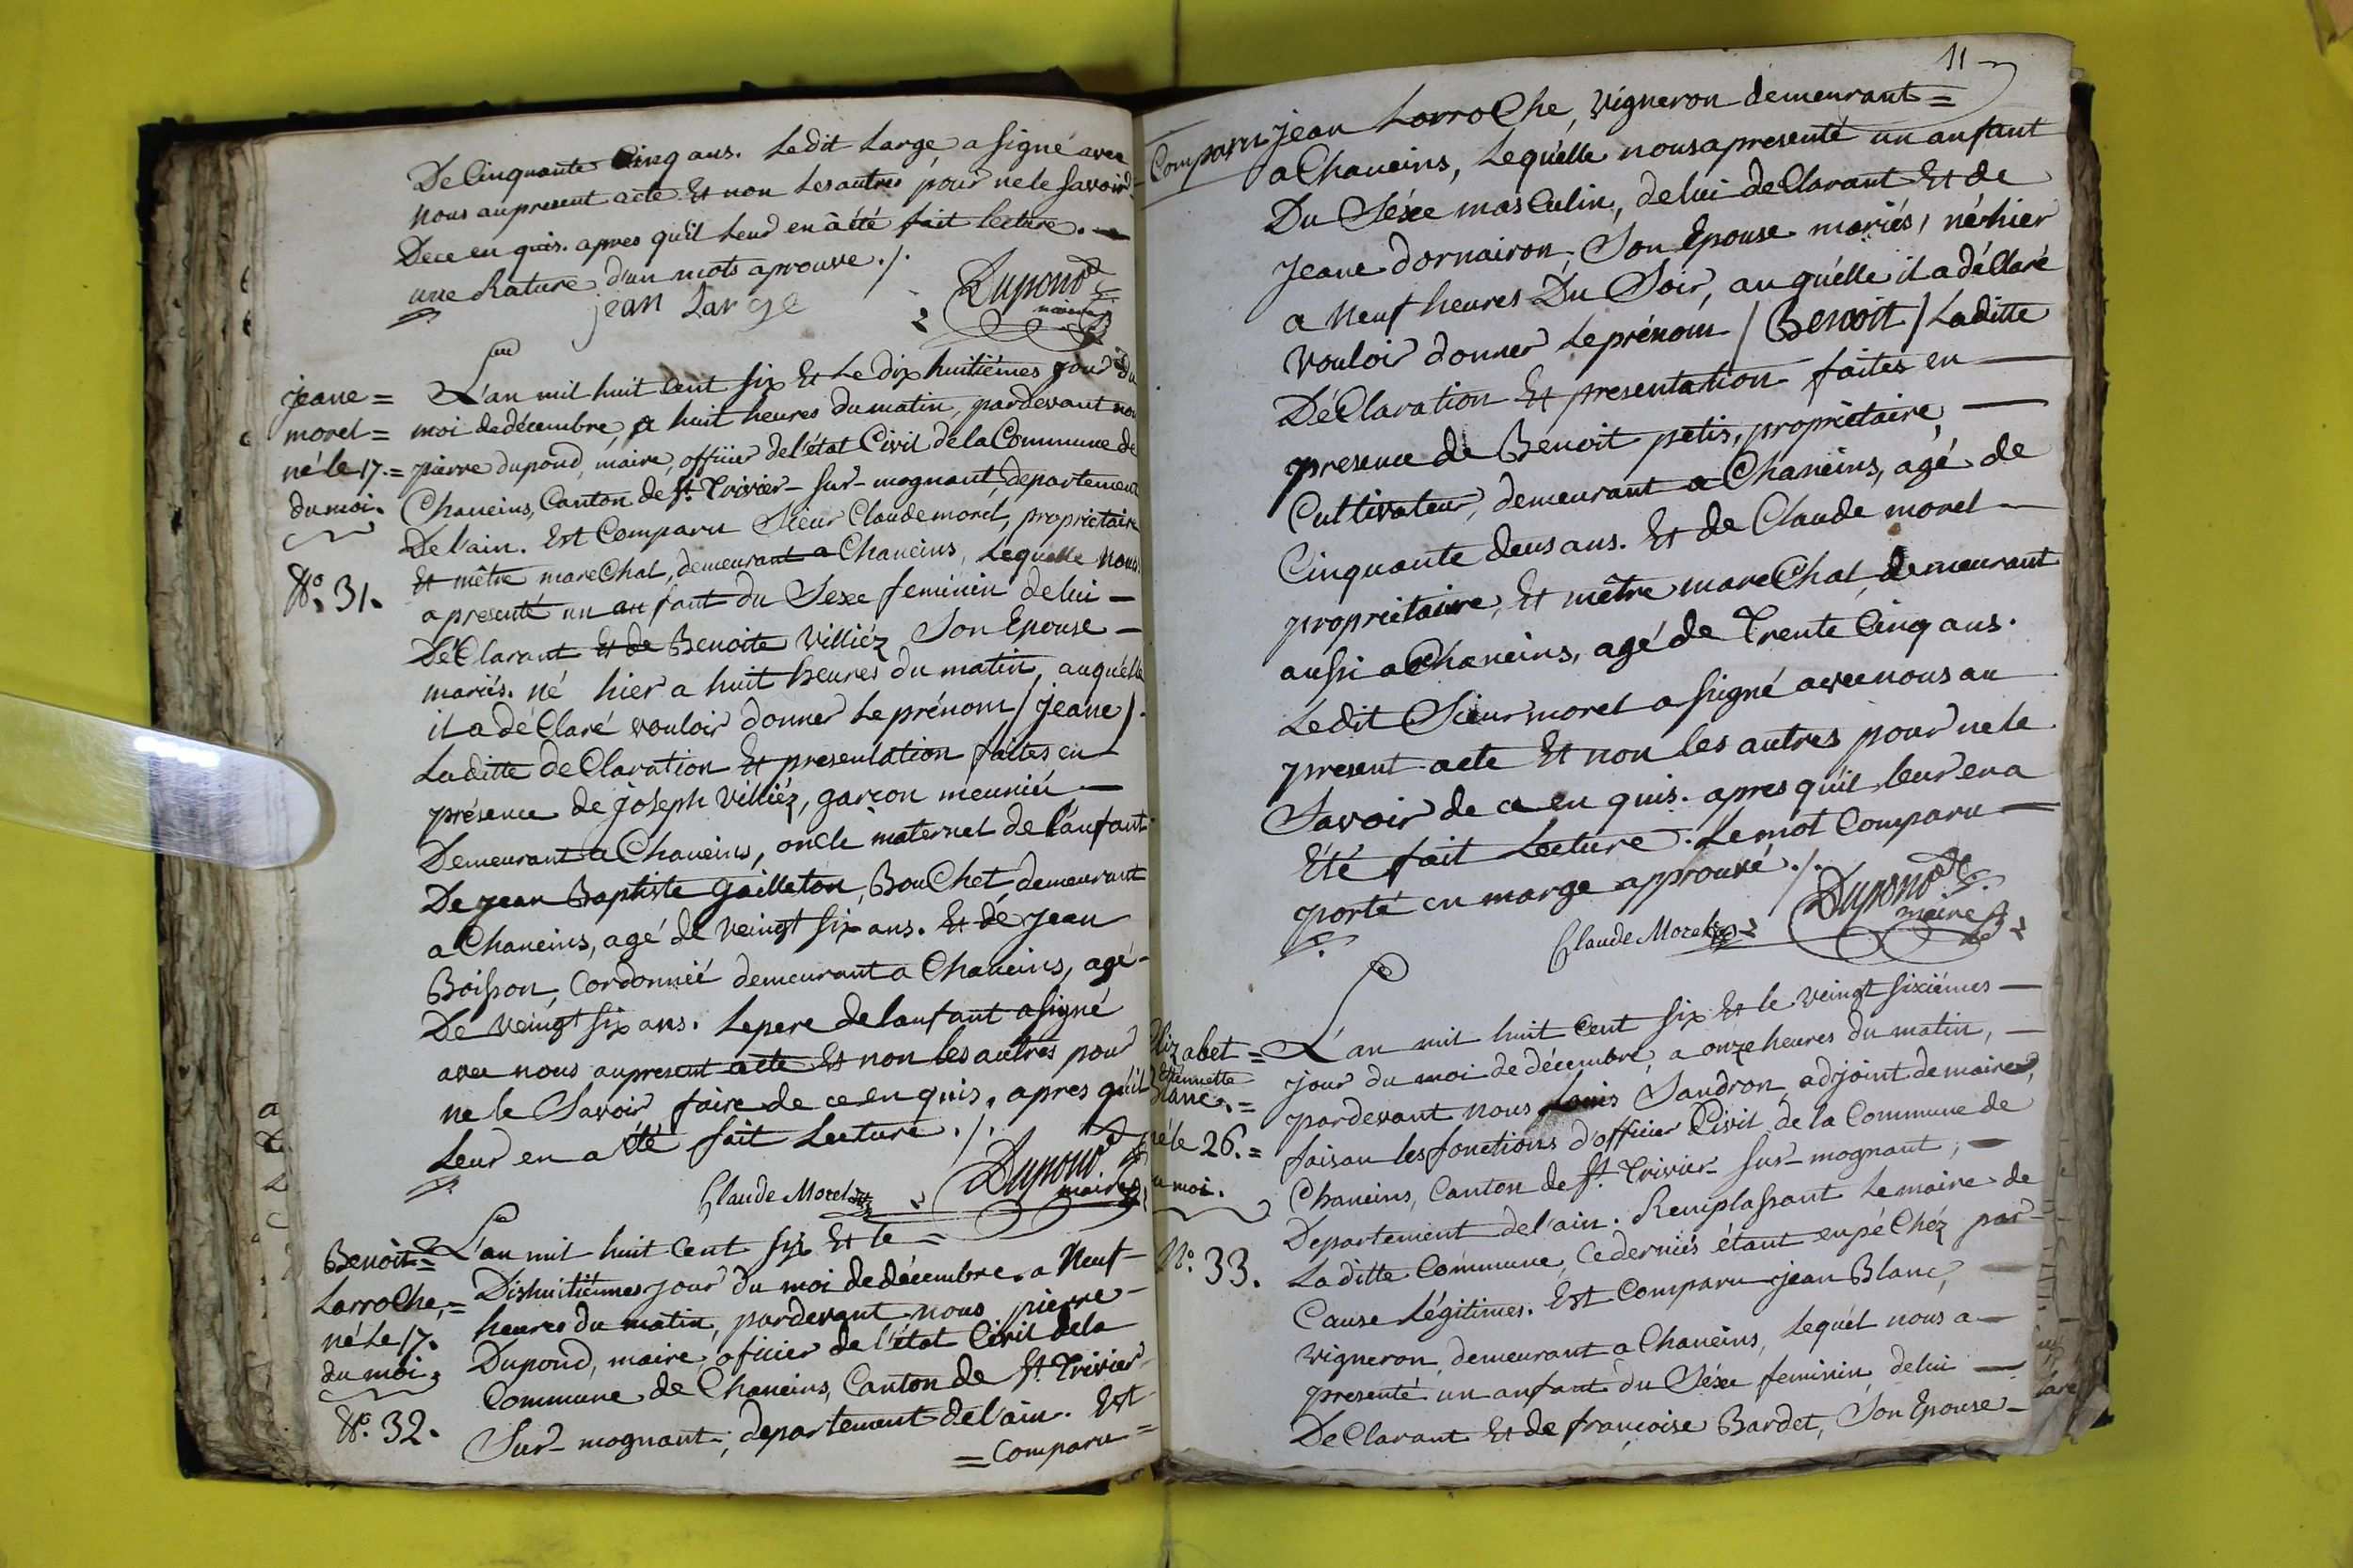 De Cinquante Cinq ans. Ledit Large, a signé avec
nous au present acte Et non Les autres pour ne le savoir
De ce en quis. apres qu'il Leur en à été fait lecture.
une Rature d'un mots aprouve ./.
jean Large
Dupond
maire
jeane =
morel =
né le 17. =
du moi.
N.° 31.
L'an mil huit cent six Et Le dix huitiémes jour du
moi de décembre, a huit heures du matin, pardevant nou
pierre dupond, maire, officier de l'état Civil de la Commune de
Chaneins, Canton de St. Trivier-sur-mognant, departement
De l'ain. Est Comparu Sieur Claude morel, proprietaire
Et mêtre mareChal, demeurant a Chaneins, Lequelle nous
a presenté un anfant du Sexe feminin de lui -
DéClarant Et de Benoite Villiéz Son Epouse -
mariés. né hier a huit heures du matin, auquélle
il a déClaré vouloir donner Le prénom / jeane /.
Laditte déClaration Et presentation faites en
présence de joseph Villiéz, garcon meunié -
Demeurant a Chaneins, oncle maternel de l'anfant
De jean Baptiste Gailleton, BouChet demeurant
a Chaneins, agé de veingt six ans. Et dé jean
Boisson, Cordonnié demeurant a Chaneins, agé -
De veingt six ans. Le pere de l'anfant a signé
avec nous au present acte Et non les autres pour
ne le Savoir faire de ce en quis, apres qu'il
Leur en a été fait Lecture ./.
Claude Morel
Dupond
maire
Benoit =
LarroChe, =
né Le 17.
du moi.
N.° 32.
L'an mil huit Cent six Et le =
Dishuitiémes jour du moi de décembre, a Neuf -
heures du matin, pardevant nous pierre -
Dupond, maire, oficier de l'état Civil de la
Commune de Chaneins, Canton de St. Trivier
Sur-mognant, departement de l'ain. Est -
= Comparu =
11
Comparu jean LarroChe, vigneron demeurant =
a Chaneins, Lequélle nous a presenté un anfant
Du Séxe masCulin, de lui deClarant Et de
jeane dornairon, Son Epouse mariés, né hier
a Neuf heures Du Soir, auquélle il a déClaré
vouloir donner Le prénom / Benoit / Laditte
DéClaration Et presentation faites en -
presence de Benoit petis, propriétaire, -
Cultivateur, demeurant a Chaneins, agé de
Cinquante deus ans. Et de Claude morel -
propriétaire, Et mêtre mareChal, demeurant
aussi a Chaneins, agé de Trente Cinq ans.
Ledit Sieur morel a signé avec nous au
present acte Et non les autres pour ne le
Savoir de ce en quis. apres qu'il leur en a
Eté fait Lecture. Le mot Comparu -
porté en marge approuvé ./.
Claude Morel
Dupond
maire
Elizabet =
Etiennette
blanc. =
né le 26. =
du moi.
N.° 33.
L'an mil huit Cent six Et le veingt sixiémes -
jour du moi de décembre, a onze heures du matin, -
pardevant nous Louis Sandron, adjoint de maire,
faisan les fonctions d'officier Civil de la Commune de
Chaneins, Canton de St. Trivier-sur-mognant, -
Departement de l'ain. Remplassant Le maire de
Laditte Commune, Ce derniés étant enpéChéz par -
Cause Légitimes. Est Comparu jean Blanc,
vigneron, demeurant a Chaneins, Lequél nous a -
presenté un anfant du Séxe feminin, de lui -
DeClarant Et de francoise Bardet, Son Epouse -